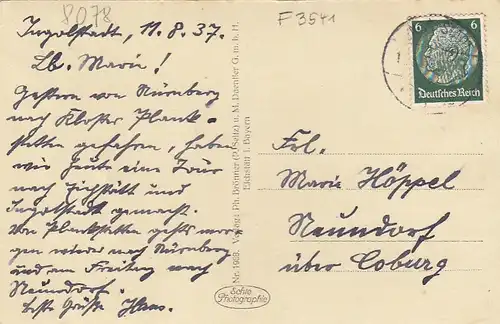 8078
F 3541
Ingolstadt, 11.8.37.
Lb. Marie!
Gestern von Nürnberg
nach Kloster Plank-
stetten gefahren, haben
wir heute eine Tour
nach Eichstätt und
Ingolstadt gemacht.
Von Plankstetten gehts mor-
gen wieder nach Nürnberg
und am Freitag nach
Neundorf.
Beste Grüße Hans.
Nr. 1908. Verlag: Ph. Brönner (P. Seitz) u. M. Daentler G. m. b. H.
Eichstätt i. Bayern
Echte
Photographie
6 6
Deutsches Reich
Frl.
Marie Höppel
Neundorf
über Coburg